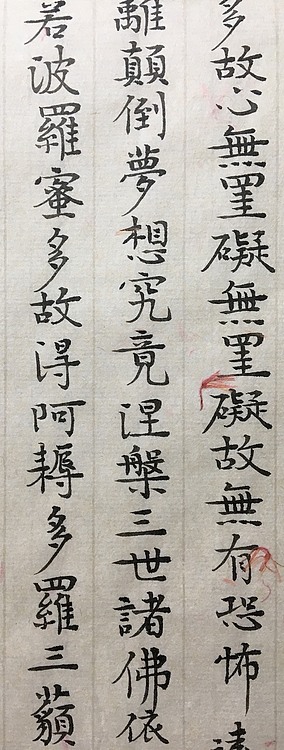 多故心無罣礙無罣礙故無有恐怖遠
離顛倒夢想究竟涅槃三世諸佛依
若波羅蜜多故得阿耨多羅三藐